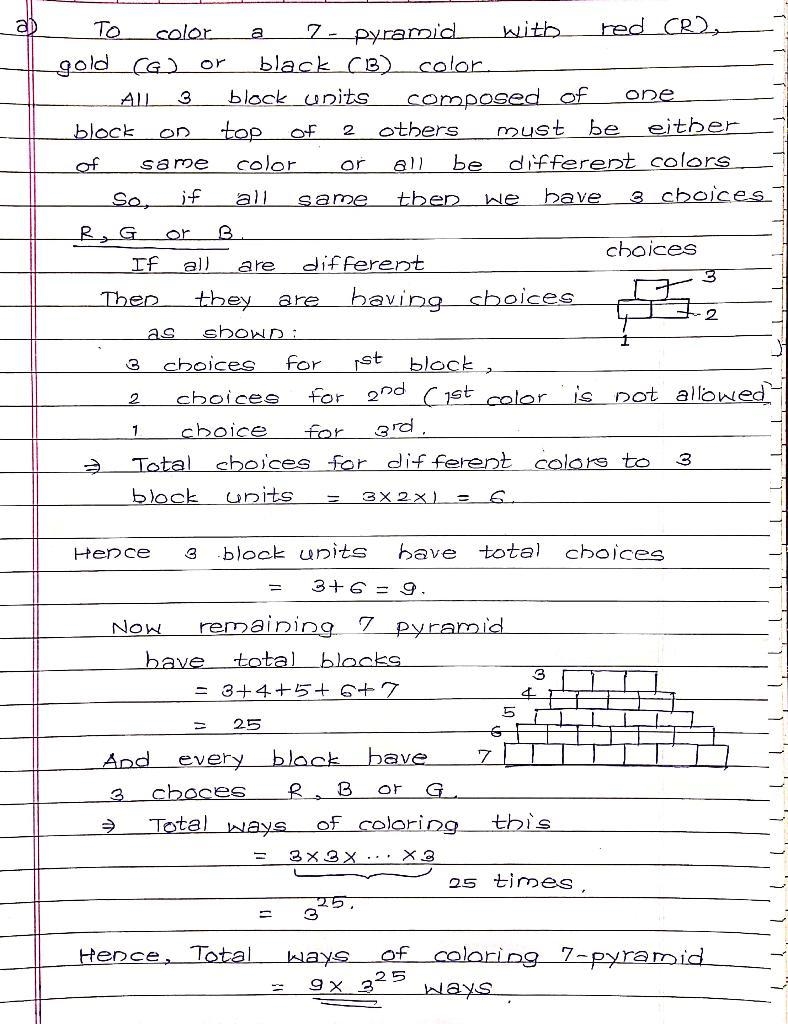 a) To color a 7-pyramid with red (R),
gold (G) or black (B) color.
All 3 block units composed of one
block on top of 2 others must be either
of same color or all be different colors
So, if all same then we have 3 choices
R, G or B.
If all are different
choices
3
Then they are having choices
2
as shown:
1
3 choices for 1st block,
2 choices for 2nd (1st color is not allowed)
1 choice for 3rd.
⇒ Total choices for different colors to 3
block units = 3×2×1 = 6.
Hence 3 block units have total choices
= 3+6 = 9.
Now remaining 7 pyramid
have total blocks
= 3+4+5+6+7
= 25
3
4
5
6
7
And every block have
3 choces R, B or G.
⇒ Total ways of coloring this
= 3×3×...×3
25 times.
= 3^25.
Hence, Total ways of coloring 7-pyramid
= 9×3^25 ways